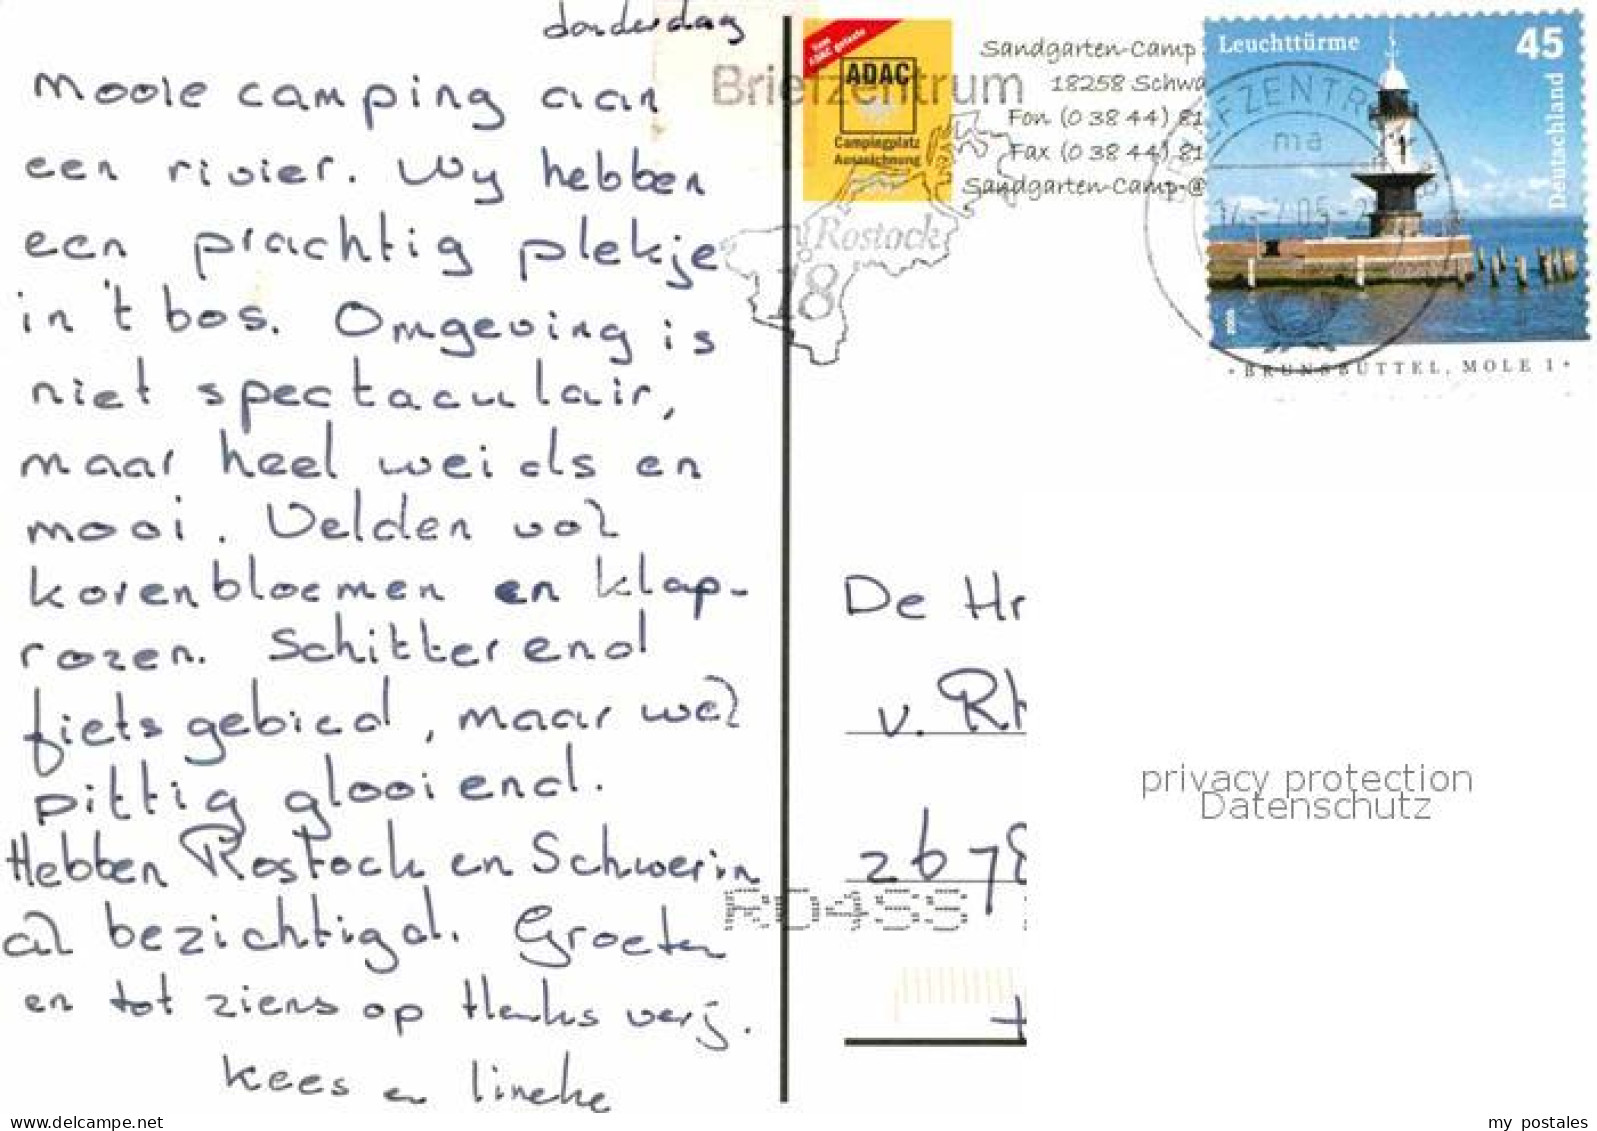 donderdag
Mooie camping aan
een rivier. Wy hebben
een prachtig plekje
in 't bos. Omgeving is
niet spectaculair,
maar heel weids en
mooi. Velden vol
korenbloemen en klap-
rozen. Schitterend
fietsgebied, maar wel
pittig glooiend.
Hebben Rostock en Schwerin
al bezichtigd. Groeten
en tot ziens op Henks verj.
Kees en Lineke
ADAC
Campingplatz
Auszeichnung
Sandgarten-Camp
18258 Schwa
Fon (0 38 44) 81
Fax (0 38 44) 81
Sandgarten-Camp-@
Briefzentrum
Rostock
18
Leuchttürme 45
Deutschland
BRIEFZENTR
ma
2005
BRUNSBÜTTEL, MOLE 1
De Hr
v. Rh
2678
privacy protection
Datenschutz
delcampe.net
my_postales